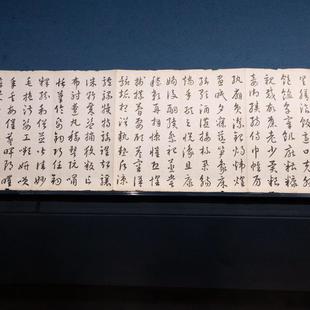 具膳飡飯適口充腸
飽飫烹宰飢厭糟糠
親戚故舊老少異糧
妾御績紡侍巾帷房
紈扇圓潔銀燭煒煌
晝眠夕寐藍笋象床
弦歌酒讌接杯舉觴
矯手頓足悅豫且康
嫡後嗣續祭祀蒸嘗
稽顙再拜悚懼恐惶
牋牒簡要顧答審詳
骸垢想浴執熱願涼
驢騾犢特駭躍超驤
誅斬賊盜捕獲叛亡
布射遼丸嵇琴阮嘯
恬筆倫紙鈞巧任釣
釋紛利俗並皆佳妙
毛施淑姿工顰妍笑
年矢每催曦暉朗曜